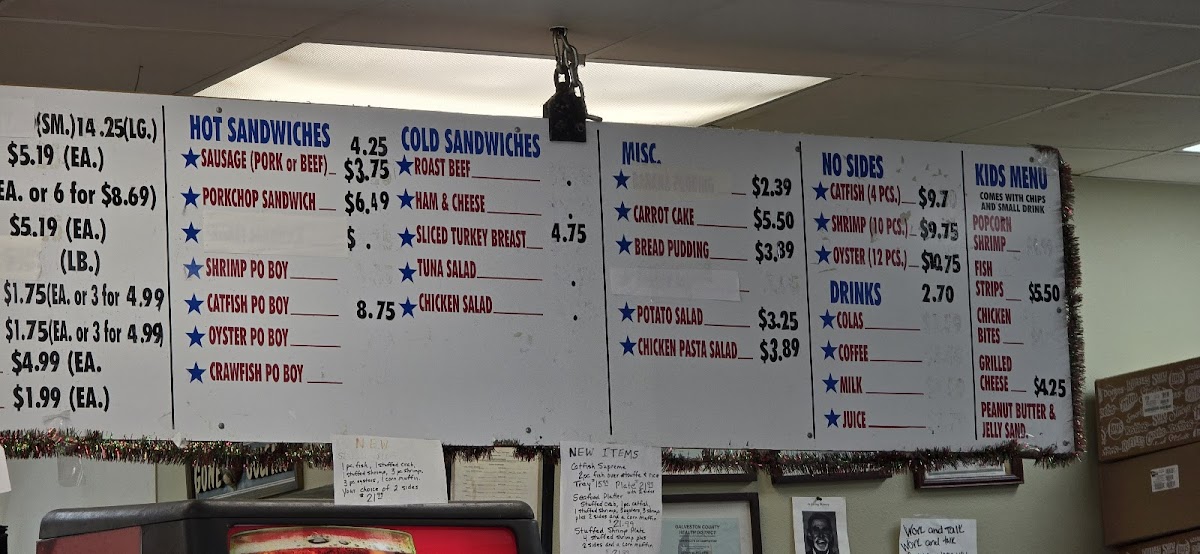 (SM.)14.25(LG.)
$5.19 (EA.)
EA. or 6 for $8.69)
$5.19 (EA.)
(LB.)
$1.75(EA. or 3 for 4.99
$1.75(EA. or 3 for 4.99)
$4.99 (EA.
$1.99 (EA.)
HOT SANDWICHES 4.25
SAUSAGE (PORK or BEEF) $3.75
PORKCHOP SANDWICH $6.49
$ .
SHRIMP PO BOY
CATFISH PO BOY 8.75
OYSTER PO BOY
CRAWFISH PO BOY
COLD SANDWICHES
ROAST BEEF
HAM & CHEESE
SLICED TURKEY BREAST 4.75
TUNA SALAD
CHICKEN SALAD
MISC.
$2.39
CARROT CAKE $5.50
BREAD PUDDING $3.39
POTATO SALAD $3.25
CHICKEN PASTA SALAD $3.89
NO SIDES
CATFISH (4 PCS.) $9.7
SHRIMP (10 PCS.) $9.75
OYSTER (12 PCS.) $10.75
DRINKS 2.70
COLAS
COFFEE
MILK
JUICE
KIDS MENU
COMES WITH CHIPS
AND SMALL DRINK
POPCORN
SHRIMP
FISH
STRIPS $5.50
CHICKEN
BITES
GRILLED
CHEESE $4.25
PEANUT BUTTER &
JELLY SAND
NEW
1 pc. fish, 1 stuffed crab,
stuffed shrimp, 3 pc. shrimp,
3 pc. oysters, 1 corn muffin.
your choice of 2 sides
$21.99
NEW ITEMS
Catfish Supreme
2 pc. fish over etouffe & rice
Tray $15.99 Plate
Seafood Platter
Stuffed crab, 1 pc. catfish,
1 stuffed shrimp, 3 oysters, 3 shrimp
plus 2 sides and a corn muffin
$21.99
Stuffed Shrimp Plate
4 stuffed shrimp plus
2 sides and a corn muffin
GALVESTON COUNTY
HEALTH DISTRICT
Work and talk
Work and talk